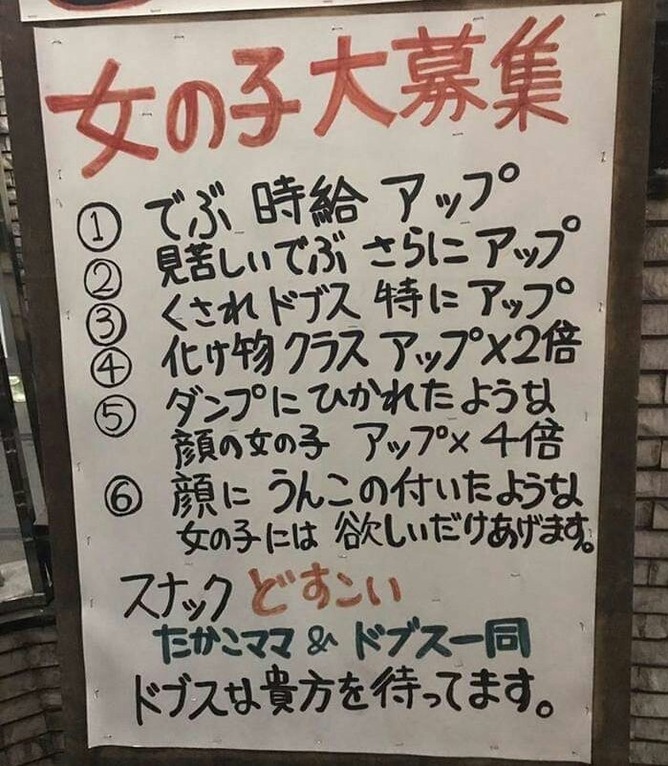 女の子大募集
① でぶ 時給 アップ
② 見苦しいでぶ さらに アップ
③ くされドブス 特に アップ
④ 化け物クラス アップ×2倍
⑤ ダンプに ひかれたような
顔の女の子 アップ×4倍
⑥ 顔に うんこの付いたような
女の子には 欲しいだけあげます。
スナック どすこい
たかこママ & ドブス一同
ドブスな貴方を待ってます。